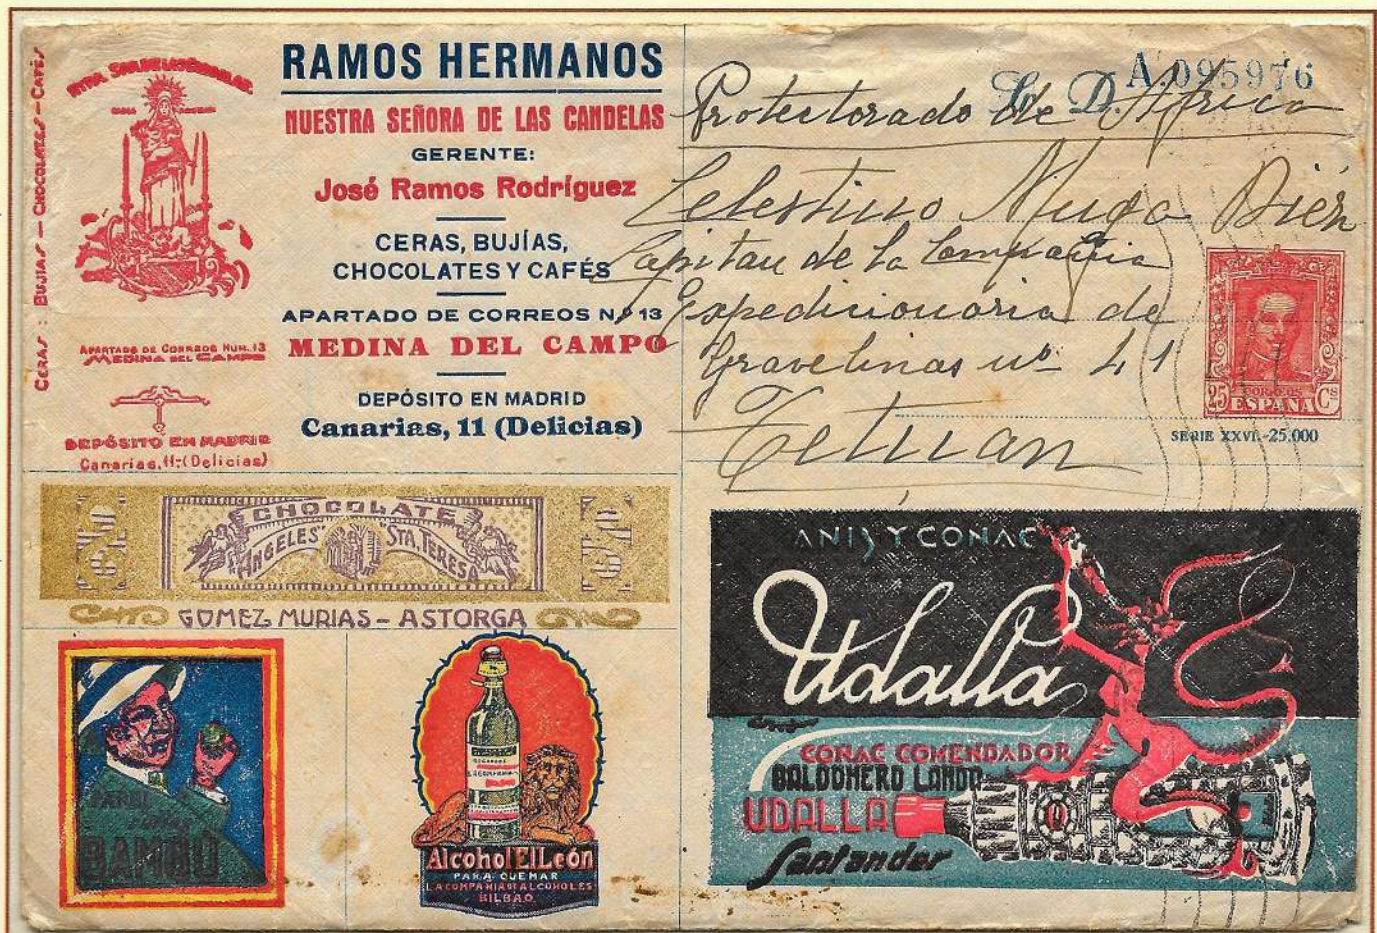 CERAS : BUJIAS - CHOCOLATES - CAFÉS
NTRA. SRA. DE LAS CANDELAS
APARTADO DE CORREOS NÚM. 13
MEDINA DEL CAMPO
DEPÓSITO EN MADRID
Canarias, 11-(Delicias)
RAMOS HERMANOS
NUESTRA SEÑORA DE LAS CANDELAS
GERENTE:
José Ramos Rodríguez
CERAS, BUJÍAS,
CHOCOLATES Y CAFÉS
APARTADO DE CORREOS N.º 13
MEDINA DEL CAMPO
DEPÓSITO EN MADRID
Canarias, 11 (Delicias)
A.095976
D.
Protectorado de Africa
Celestino
Capitan de la Compañia
Expedicionaria de
Gravelinas nº 41
Tetuan
25 CORREOS Cs
ESPAÑA
SERIE XXVI.-25.000
CHOCOLATE
ANGELES STA. TERESA
GOMEZ MURIAS - ASTORGA
PAPEL
BAMBÚ
Alcohol El León
PARA QUEMAR
LA COMPAÑIA DE ALCOHOLES
BILBAO
ANIS Y COÑAC
Udalla
COÑAC COMENDADOR
BALDOMERO LANDA
UDALLA
Santander